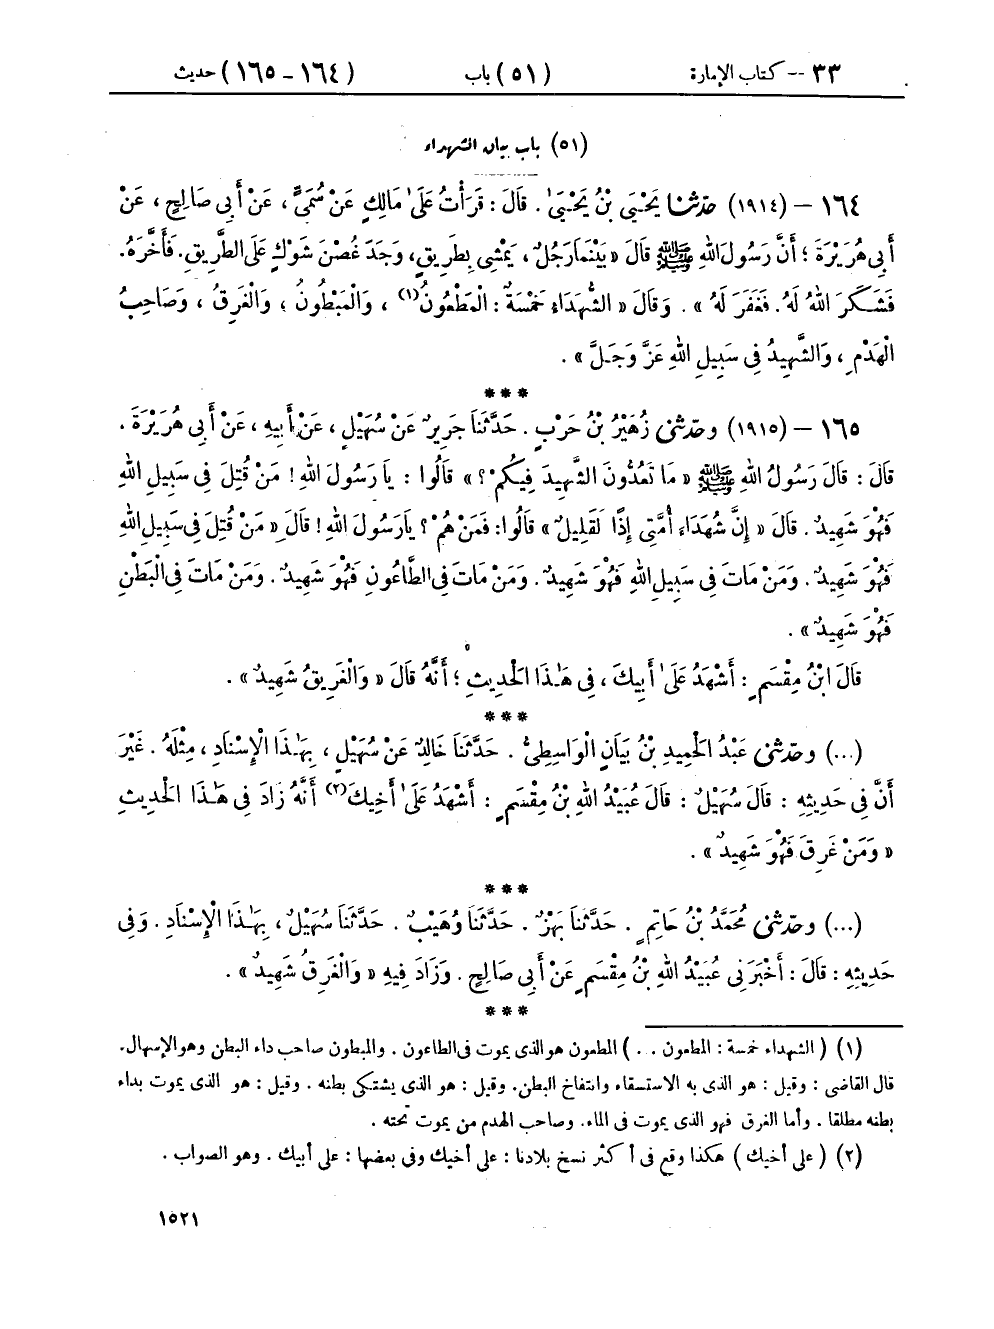 ٣٣ -- كتاب الإمارة (٥١) باب (١٦٤ - ١٦٥) حديث
(٥١) باب بيان الشهداء
١٦٤ – (١٩١٤) حدّثنا يَحْيَى بْنُ يَحْيَىٰ . قَالَ : قَرَأْتُ عَلَىٰ مَالِكٍ عَنْ سُمَيٍّ ، عَنْ أَبِي صَالِحٍ ، عَنْ
أَبِي هُرَيْرَةَ ؛ أَنَّ رَسُولَ اللهِ ﷺ قَالَ « بَيْنَمَا رَجُلٌ ، يَمْشِي بِطَرِيقٍ ، وَجَدَ غُصْنَ شَوْكٍ عَلَى الطَّرِيقِ . فَأَخَّرَهُ .
فَشَكَرَ اللهُ لَهُ . فَغَفَرَ لَهُ » . وَقَالَ « الشُّهَدَاءُ خَمْسَةٌ : الْمَطْعُونُ (١) ، وَالْمَبْطُونُ ، وَالْغَرِقُ ، وَصَاحِبُ
الْهَدْمِ ، وَالشَّهِيدُ فِي سَبِيلِ اللهِ عَزَّ وَجَلَّ » .
***
١٦٥ – (١٩١٥) وحدّثني زُهَيْرُ بْنُ حَرْبٍ . حَدَّثَنَا جَرِيرٌ عَنْ سُهَيْلٍ ، عَنْ أَبِيهِ ، عَنْ أَبِي هُرَيْرَةَ .
قَالَ : قَالَ رَسُولُ اللهِ ﷺ « مَا تَعُدُّونَ الشَّهِيدَ فِيكُمْ ؟ » قَالُوا : يَا رَسُولَ اللهِ ! مَنْ قُتِلَ فِي سَبِيلِ اللهِ
فَهُوَ شَهِيدٌ . قَالَ « إِنَّ شُهَدَاءَ أُمَّتِي إِذًا لَقَلِيلٌ » قَالُوا : فَمَنْ هُمْ ؟ يَا رَسُولَ اللهِ ! قَالَ « مَنْ قُتِلَ فِي سَبِيلِ اللهِ
فَهُوَ شَهِيدٌ . وَمَنْ مَاتَ فِي سَبِيلِ اللهِ فَهُوَ شَهِيدٌ . وَمَنْ مَاتَ فِي الطَّاعُونِ فَهُوَ شَهِيدٌ . وَمَنْ مَاتَ فِي الْبَطْنِ
فَهُوَ شَهِيدٌ » .
قَالَ ابْنُ مِقْسَمٍ : أَشْهَدُ عَلَىٰ أَبِيكَ ، فِي هَـٰذَا الْحَدِيثِ ؛ أَنَّهُ قَالَ « وَالْغَرِيقُ شَهِيدٌ » .
***
(...) وحدّثني عَبْدُ الْحَمِيدِ بْنُ بَيَانٍ الْوَاسِطِيُّ . حَدَّثَنَا خَالِدٌ عَنْ سُهَيْلٍ ، بِهَـٰذَا الْإِسْنَادِ ، مِثْلَهُ . غَيْرَ
أَنَّ فِي حَدِيثِهِ : قَالَ سُهَيْلٌ : قَالَ عُبَيْدُ اللهِ بْنُ مِقْسَمٍ : أَشْهَدُ عَلَىٰ أَخِيكَ (٢) أَنَّهُ زَادَ فِي هَـٰذَا الْحَدِيثِ
« وَمَنْ غَرِقَ فَهُوَ شَهِيدٌ » .
***
(...) وحدّثني مُحَمَّدُ بْنُ حَاتِمٍ . حَدَّثَنَا بَهْزٌ . حَدَّثَنَا وُهَيْبٌ . حَدَّثَنَا سُهَيْلٌ ، بِهَـٰذَا الْإِسْنَادِ . وَفِي
حَدِيثِهِ : قَالَ : أَخْبَرَنِي عُبَيْدُ اللهِ بْنُ مِقْسَمٍ عَنْ أَبِي صَالِحٍ . وَزَادَ فِيهِ « وَالْغَرِقُ شَهِيدٌ » .
***
(١) ( الشهداء خمسة : المطعون . . ) المطعون هو الذى يموت فى الطاعون . والمبطون صاحب داء البطن وهو الإسهال .
قال القاضى : وقيل : هو الذى به الاستسقاء وانتفاخ البطن . وقيل : هو الذى يشتكى بطنه . وقيل : هو الذى يموت بداء
بطنه مطلقا . وأما الغرق فهو الذى يموت فى الماء . وصاحب الهدم من يموت تحته .
(٢) ( على أخيك ) هكذا وقع فى أكثر نسخ بلادنا : على أخيك وفى بعضها : على أبيك . وهو الصواب .
١٥٢١